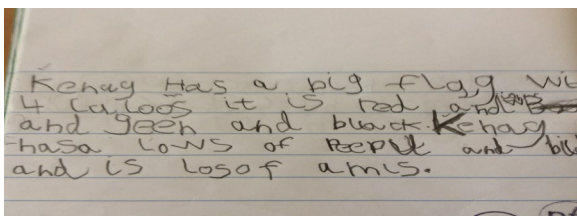 Kenag Has a big flgg Wi
4 Culoos it is red and
and geen and buack. Kenag
hasa lows of PeePle and bic
and is losof amls.